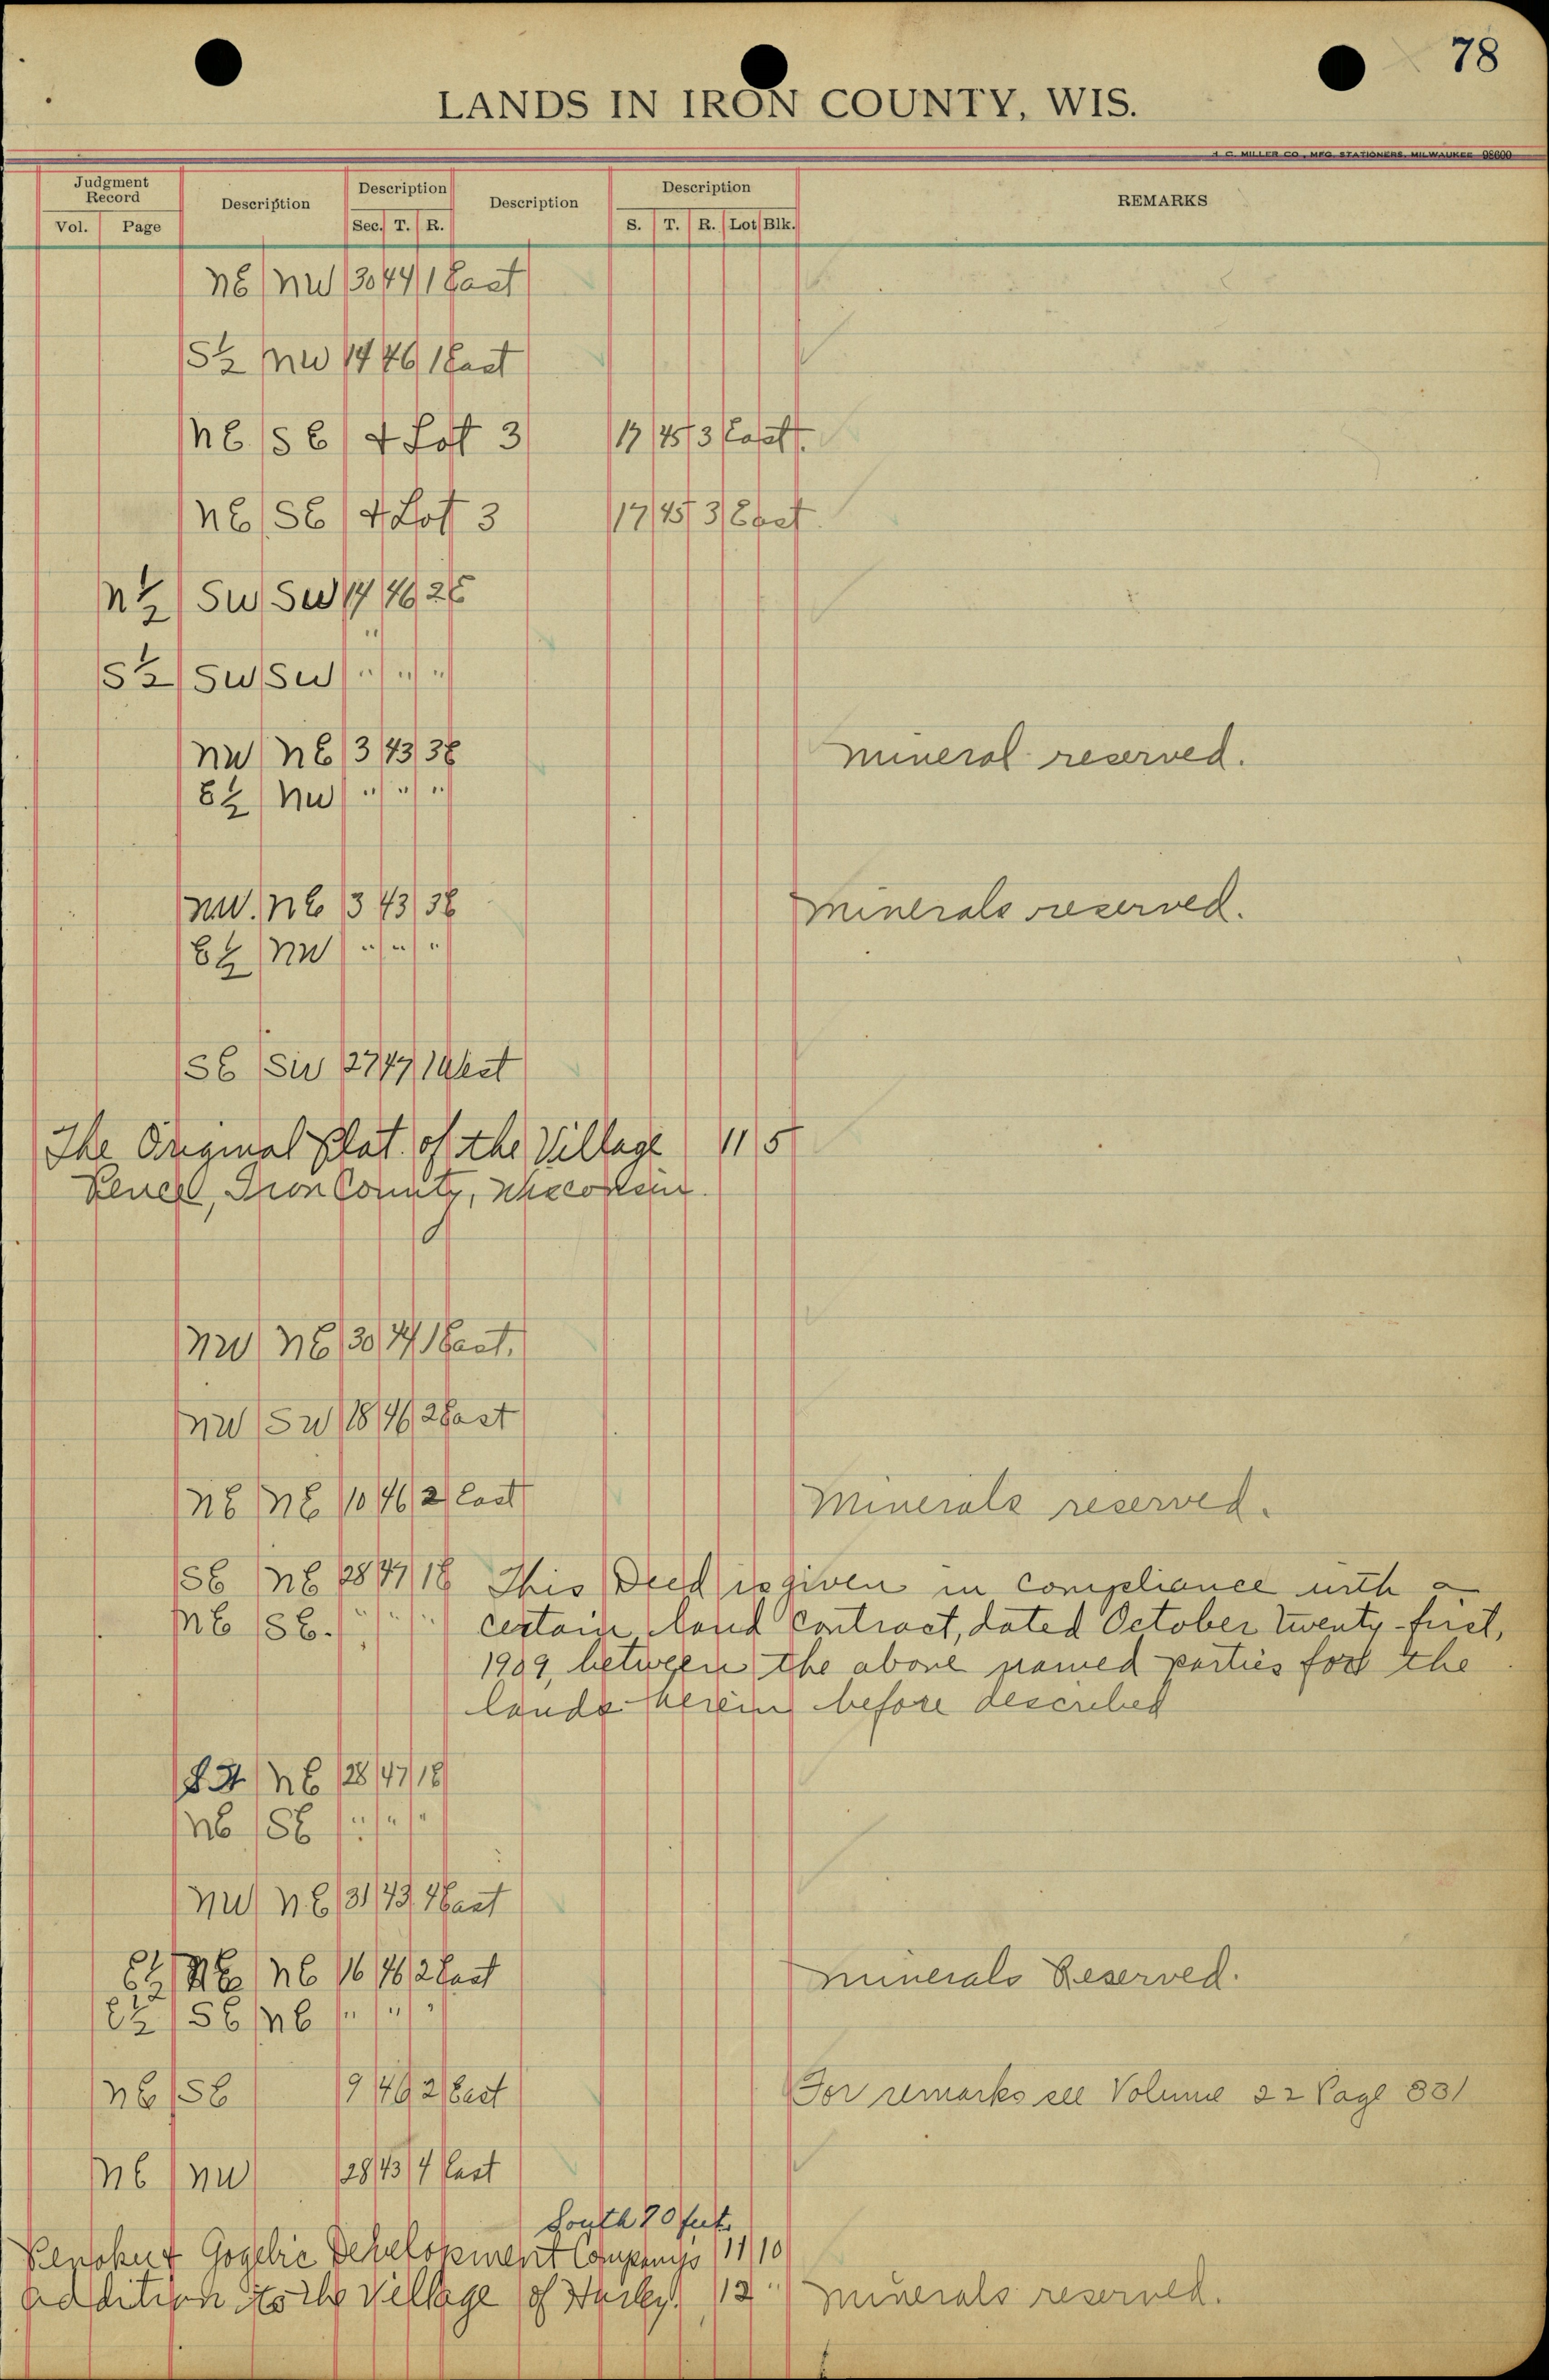 78
LANDS IN IRON COUNTY, WIS.
J. C. MILLER CO., MFG. STATIONERS, MILWAUKEE 98600
Judgment Record Description Description Description Description REMARKS
Vol. Page Sec. T. R. S. T. R. Lot Blk.
NE NW 30 44 1 East
S½ NW 14 46 1 East
NE SE & Lot 3 17 45 3 East.
NE SE & Lot 3 17 45 3 East.
N½ SW SW 14 46 2E
S½ SW SW " " "
NW NE 3 43 3E mineral reserved.
E½ NW " " "
NW. NE 3 43 3E minerals reserved.
E½ NW " " "
SE SW 27 47 1 West
The Original Plat of the Village 11 5
Pence, Iron County, Wisconsin.
NW NE 30 44 1 East.
NW SW 18 46 2 East
NE NE 10 46 2 East Minerals reserved.
SE NE 28 47 1E This Deed is given in compliance with a
NE SE. " " " certain land contract, dated October twenty-first,
1909, between the above named parties for the
lands herein before described
NE 28 47 1E
NE SE " " "
NW NE 31 43 4 East
E½ NE NE 16 46 2 East minerals Reserved.
E½ SE NE " " "
NE SE 9 46 2 East For remarks see Volume 22 Page 331
NE NW 28 43 4 East
South 20 feet
Penokee & Gogebic Development Companys 11 10
Addition to the Village of Hurley. 12 " minerals reserved.